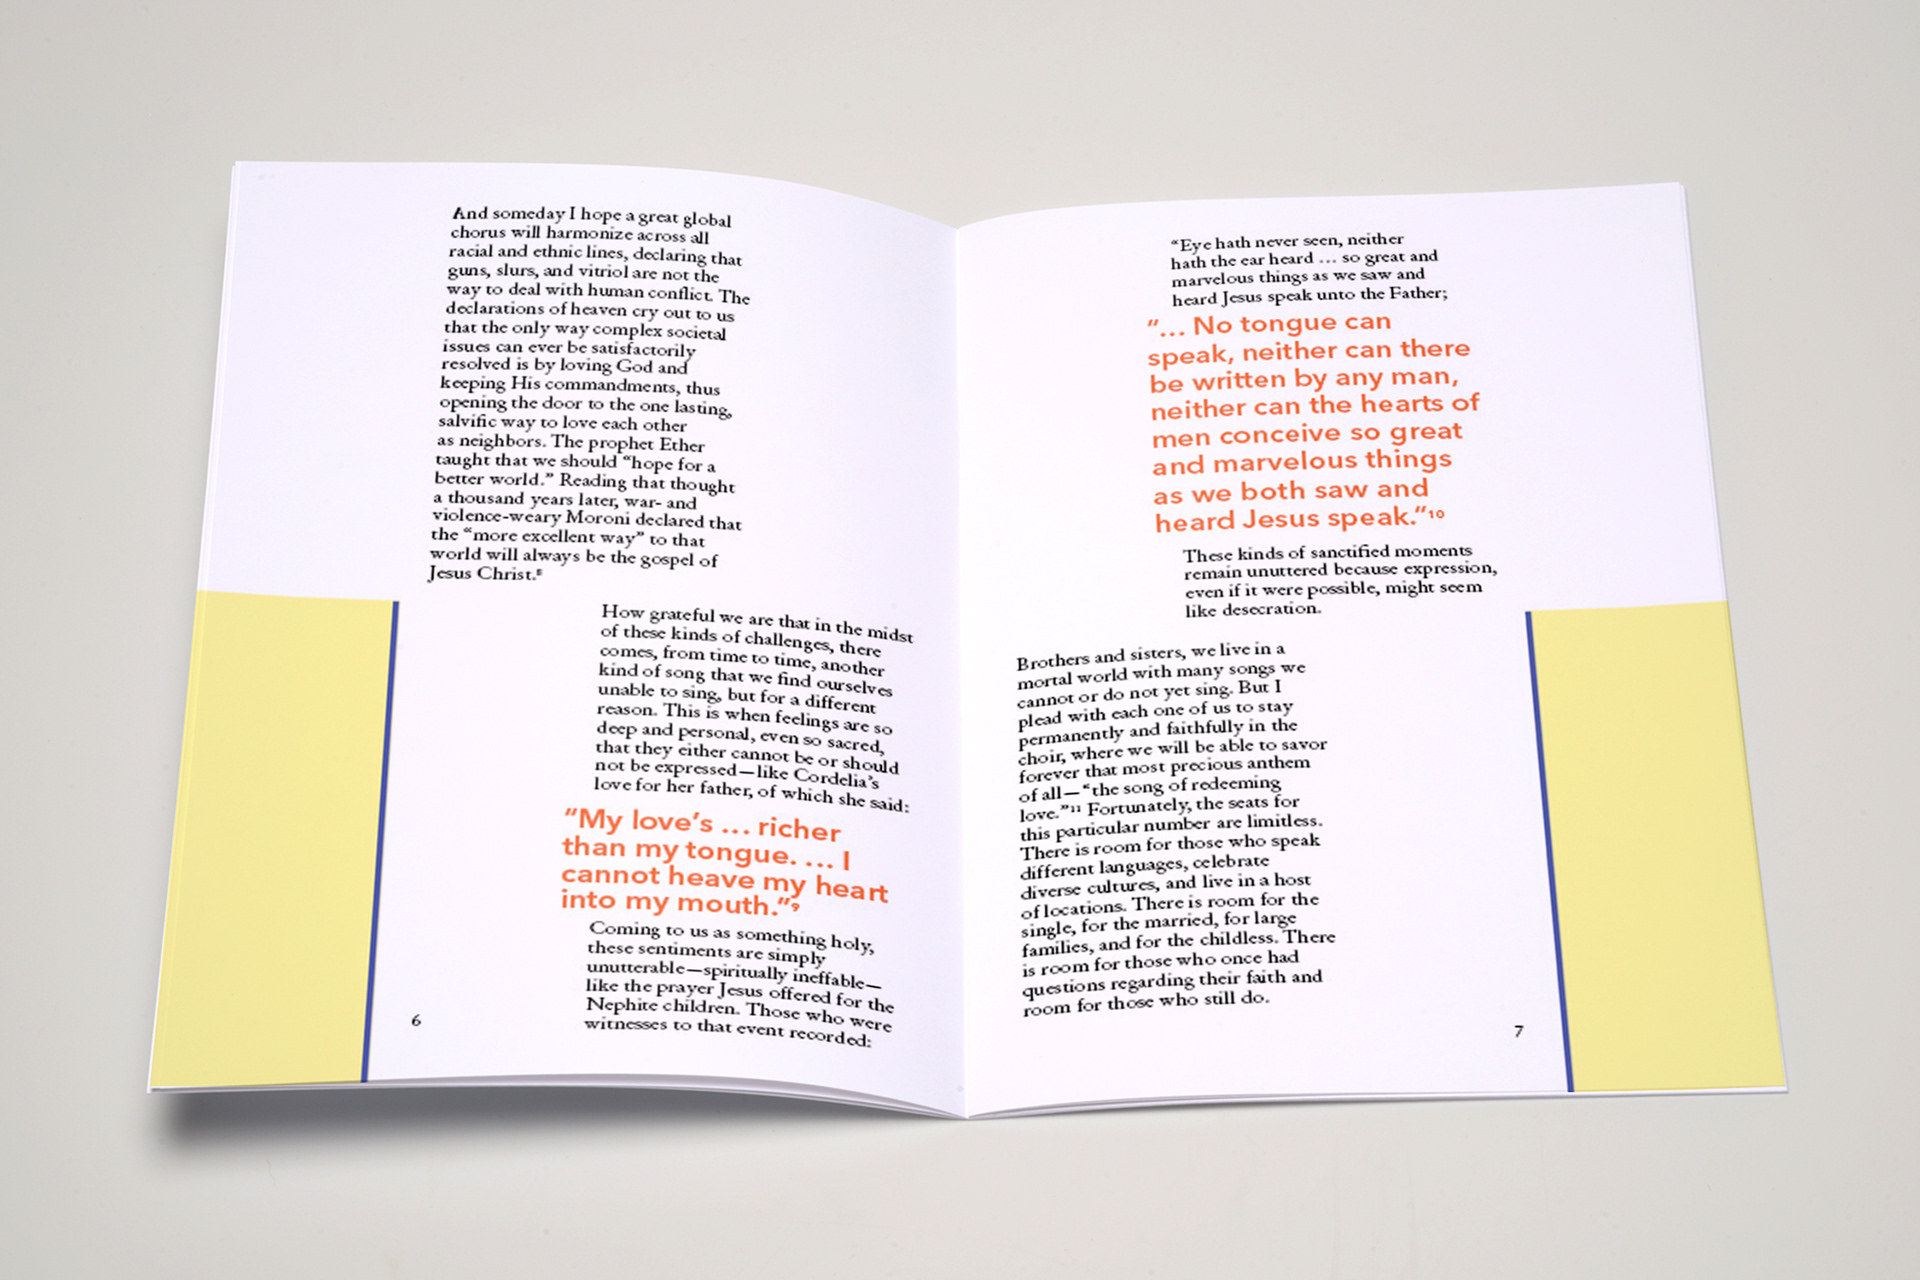 And someday I hope a great global
chorus will harmonize across all
racial and ethnic lines, declaring that
guns, slurs, and vitriol are not the
way to deal with human conflict. The
declarations of heaven cry out to us
that the only way complex societal
issues can ever be satisfactorily
resolved is by loving God and
keeping His commandments, thus
opening the door to the one lasting,
salvific way to love each other
as neighbors. The prophet Ether
taught that we should “hope for a
better world.” Reading that thought
a thousand years later, war- and
violence-weary Moroni declared that
the “more excellent way” to that
world will always be the gospel of
Jesus Christ.⁸
How grateful we are that in the midst
of these kinds of challenges, there
comes, from time to time, another
kind of song that we find ourselves
unable to sing, but for a different
reason. This is when feelings are so
deep and personal, even so sacred,
that they either cannot be or should
not be expressed—like Cordelia’s
love for her father, of which she said:
“My love’s ... richer
than my tongue. ... I
cannot heave my heart
into my mouth.”⁹
Coming to us as something holy,
these sentiments are simply
unutterable—spiritually ineffable—
like the prayer Jesus offered for the
Nephite children. Those who were
witnesses to that event recorded:
6
“Eye hath never seen, neither
hath the ear heard ... so great and
marvelous things as we saw and
heard Jesus speak unto the Father;
“... No tongue can
speak, neither can there
be written by any man,
neither can the hearts of
men conceive so great
and marvelous things
as we both saw and
heard Jesus speak.”¹⁰
These kinds of sanctified moments
remain unuttered because expression,
even if it were possible, might seem
like desecration.
Brothers and sisters, we live in a
mortal world with many songs we
cannot or do not yet sing. But I
plead with each one of us to stay
permanently and faithfully in the
choir, where we will be able to savor
forever that most precious anthem
of all—“the song of redeeming
love.”¹¹ Fortunately, the seats for
this particular number are limitless.
There is room for those who speak
different languages, celebrate
diverse cultures, and live in a host
of locations. There is room for the
single, for the married, for large
families, and for the childless. There
is room for those who once had
questions regarding their faith and
room for those who still do.
7